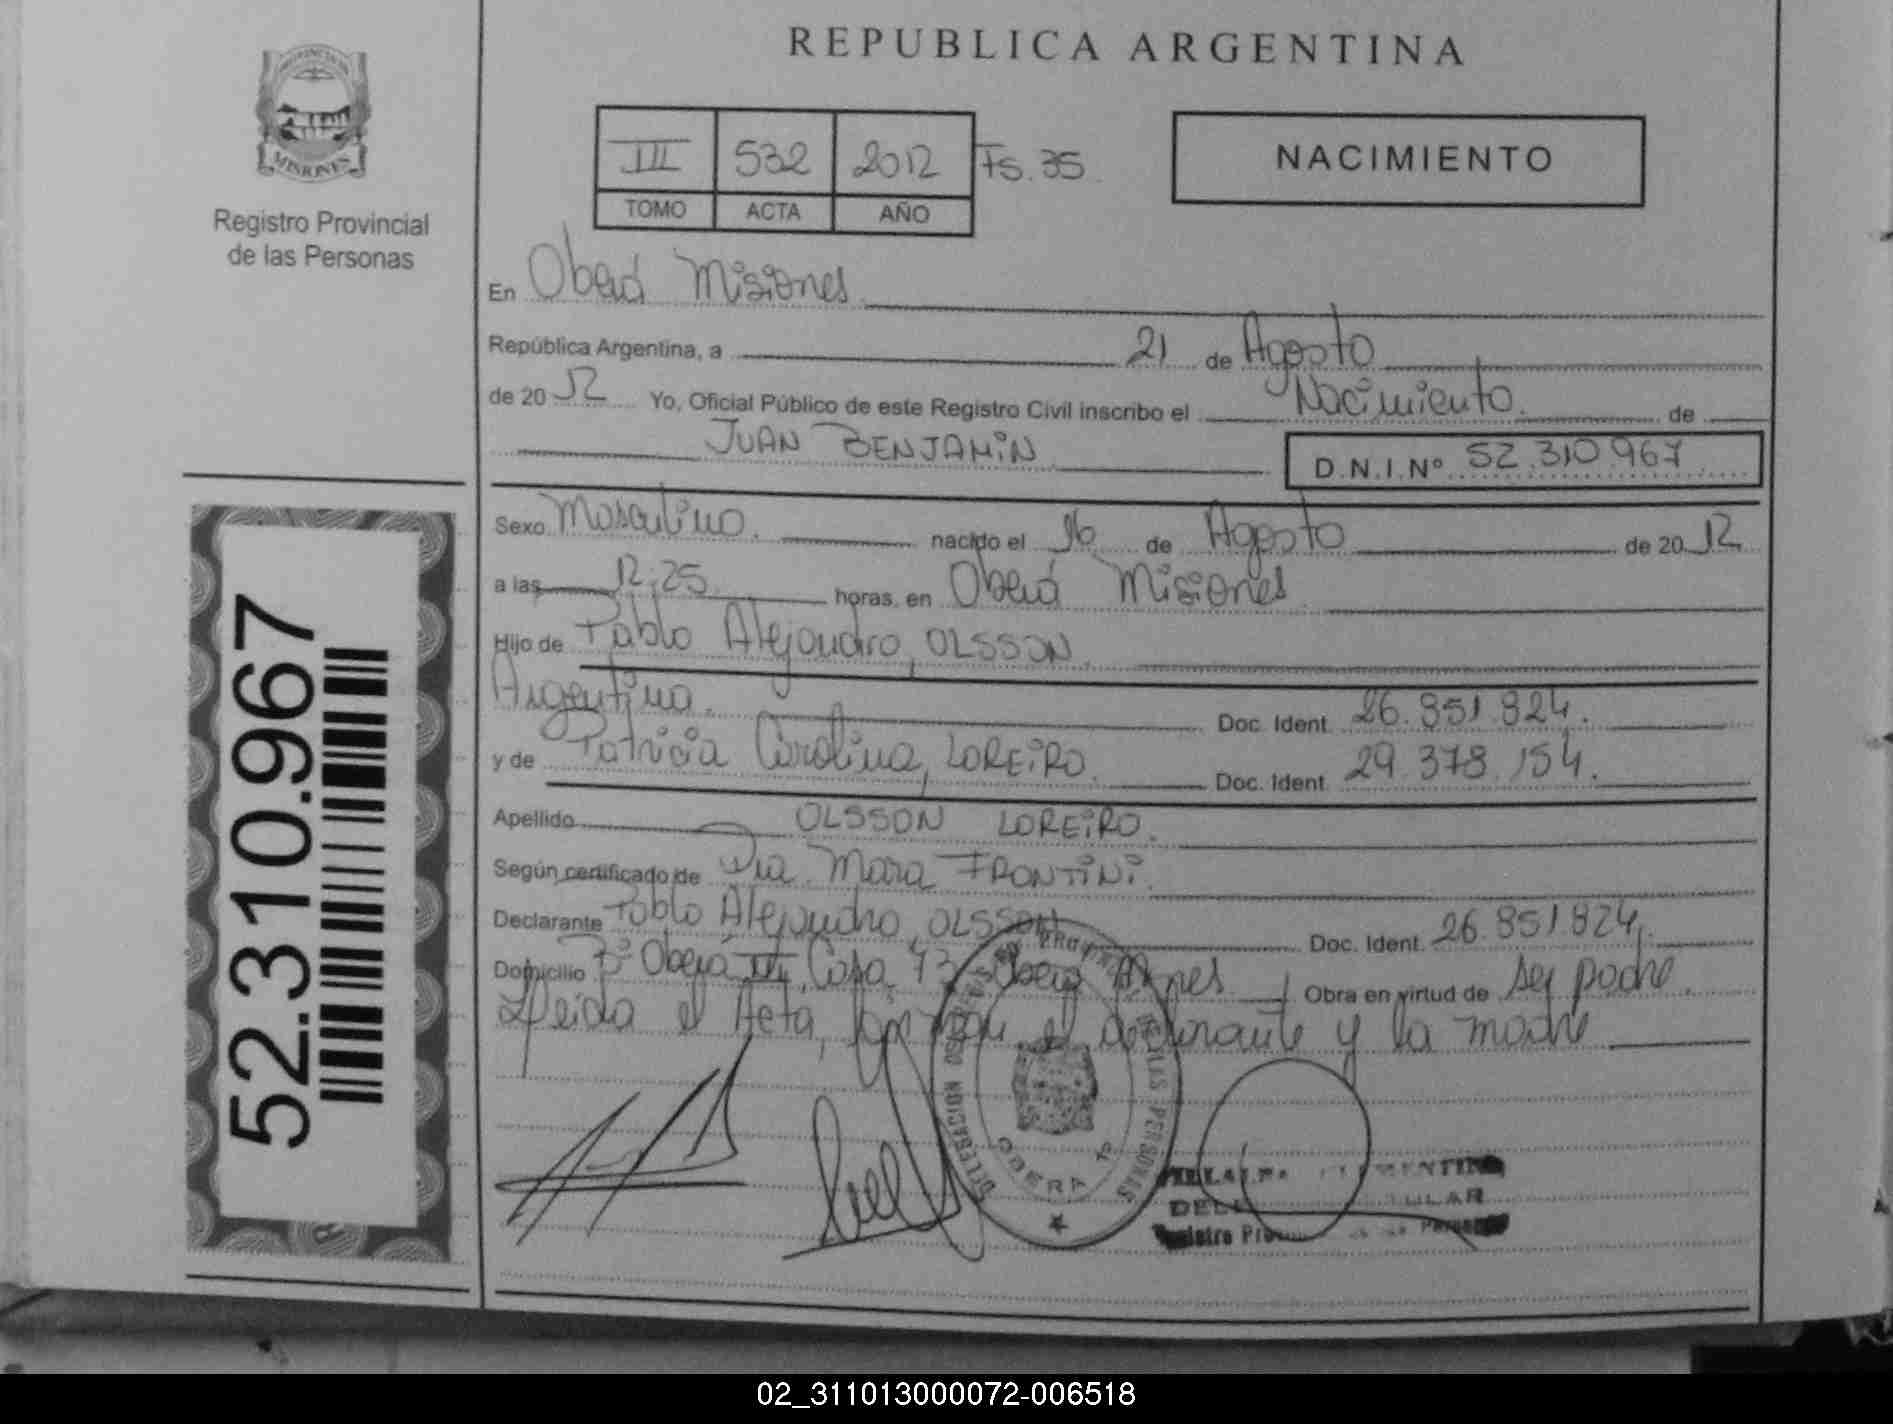 REPUBLICA ARGENTINA
PROVINCIA DE
MISIONES
Registro Provincial
de las Personas
III 532 2012 Fs. 35
TOMO ACTA AÑO
NACIMIENTO
En Oberá Misiones
República Argentina, a 21 de Agosto
de 2012 Yo, Oficial Público de este Registro Civil inscribo el Nacimiento. de
JUAN BENJAMiN D.N.I.Nº 52.310.967
Sexo Masculino. nacido el 16 de Agosto de 2012
a las 12:25 horas. en Oberá Misiones
Hijo de Pablo Alejandro, OLSSON
Argentina. Doc. Ident. 26.851.824.
y de Patricia Carolina, LOREiRO. Doc. Ident. 29.378.154.
Apellido OLSSON LOREiRO.
Según certificado de Dra. Mara FRONTiNi.
Declarante Pablo Alejandro, OLSSON Doc. Ident. 26.851.824.
Domicilio Bº Oberá III, Casa 43, Oberá Mnes Obra en virtud de ser padre.
Leida el Acta, firman el declarante y la madre
DELEGACION
DE LAS PERSONAS
OBERA
Registro
52.310.967
02_311013000072-006518